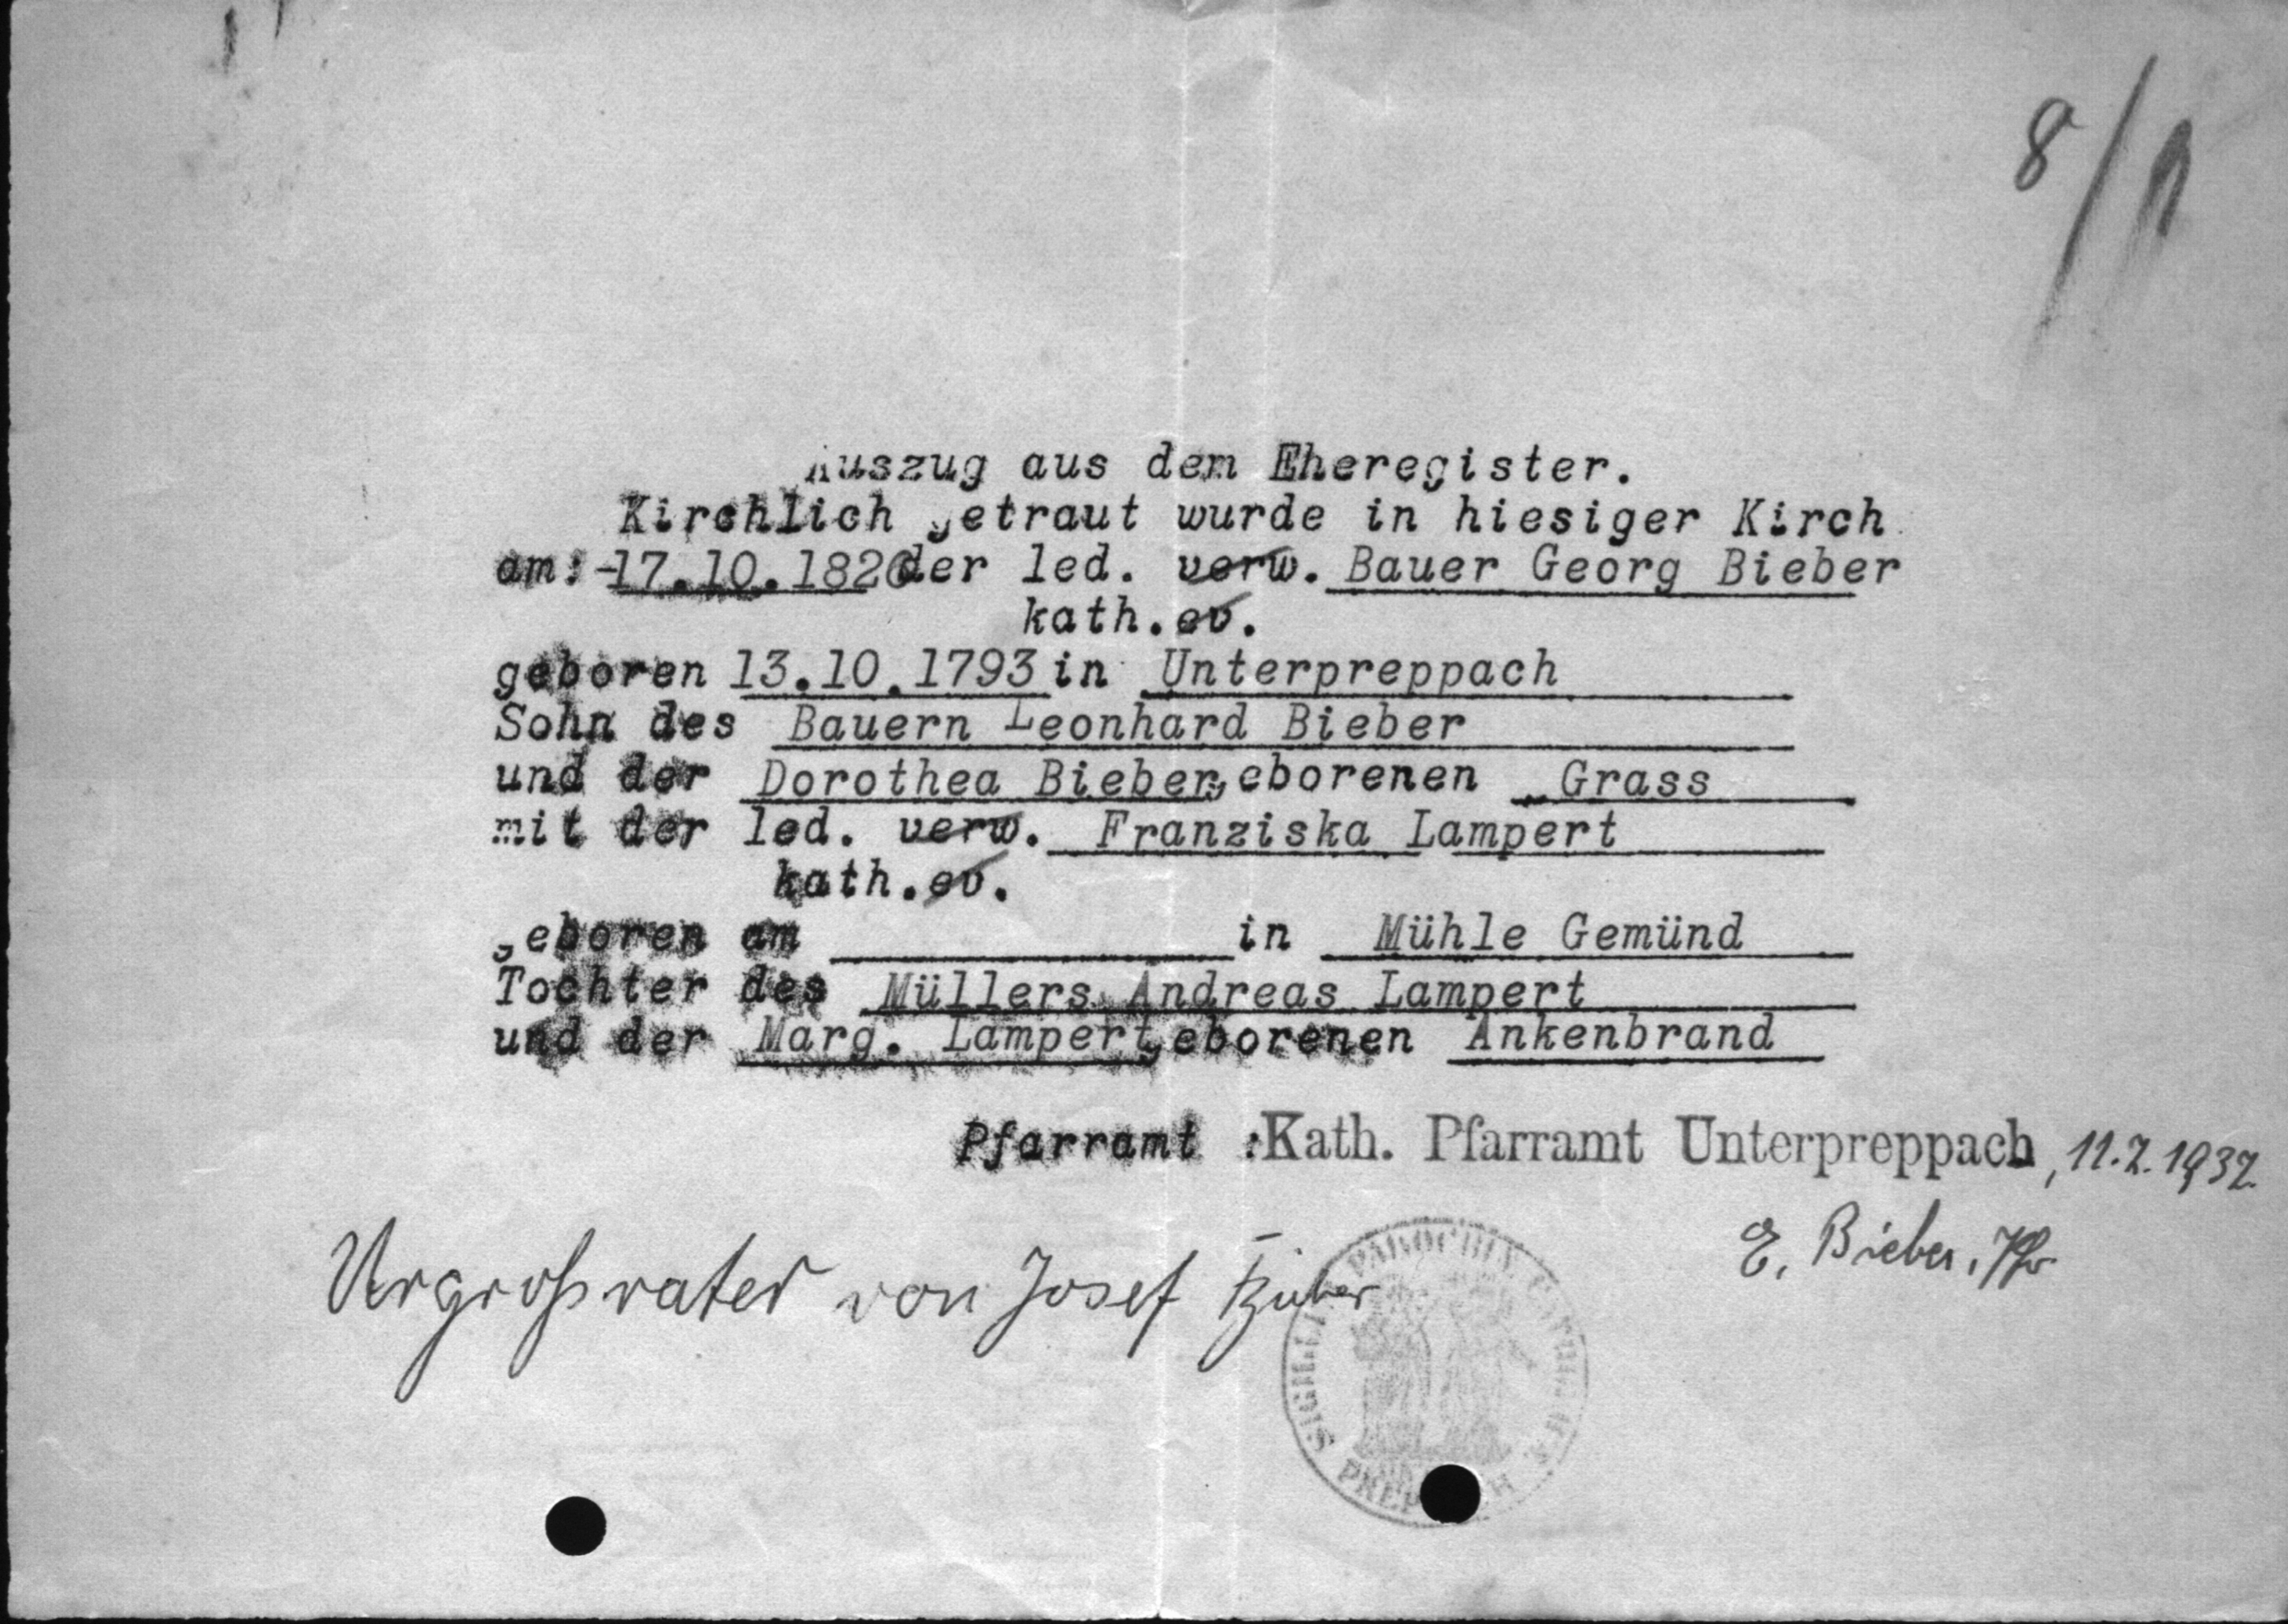 8/1
Auszug aus dem Eheregister.
Kirchlich getraut wurde in hiesiger Kirch
am: -17.10.1826 der led. verw. Bauer Georg Bieber
kath. ev.
geboren 13.10.1793 in Unterpreppach
Sohn des Bauern Leonhard Bieber
und der Dorothea Bieber geborenen Grass
mit der led. verw. Franziska Lampert
kath. ev.
geboren am in Mühle Gemünd
Tochter des Müllers Andreas Lampert
und der Marg. Lampert geborenen Ankenbrand
Pfarramt : Kath. Pfarramt Unterpreppach, 11.7.1937.
E. Bieber, Pfr
Urgroßvater von Josef Bieber
SIGILL. PAROCHIÆ